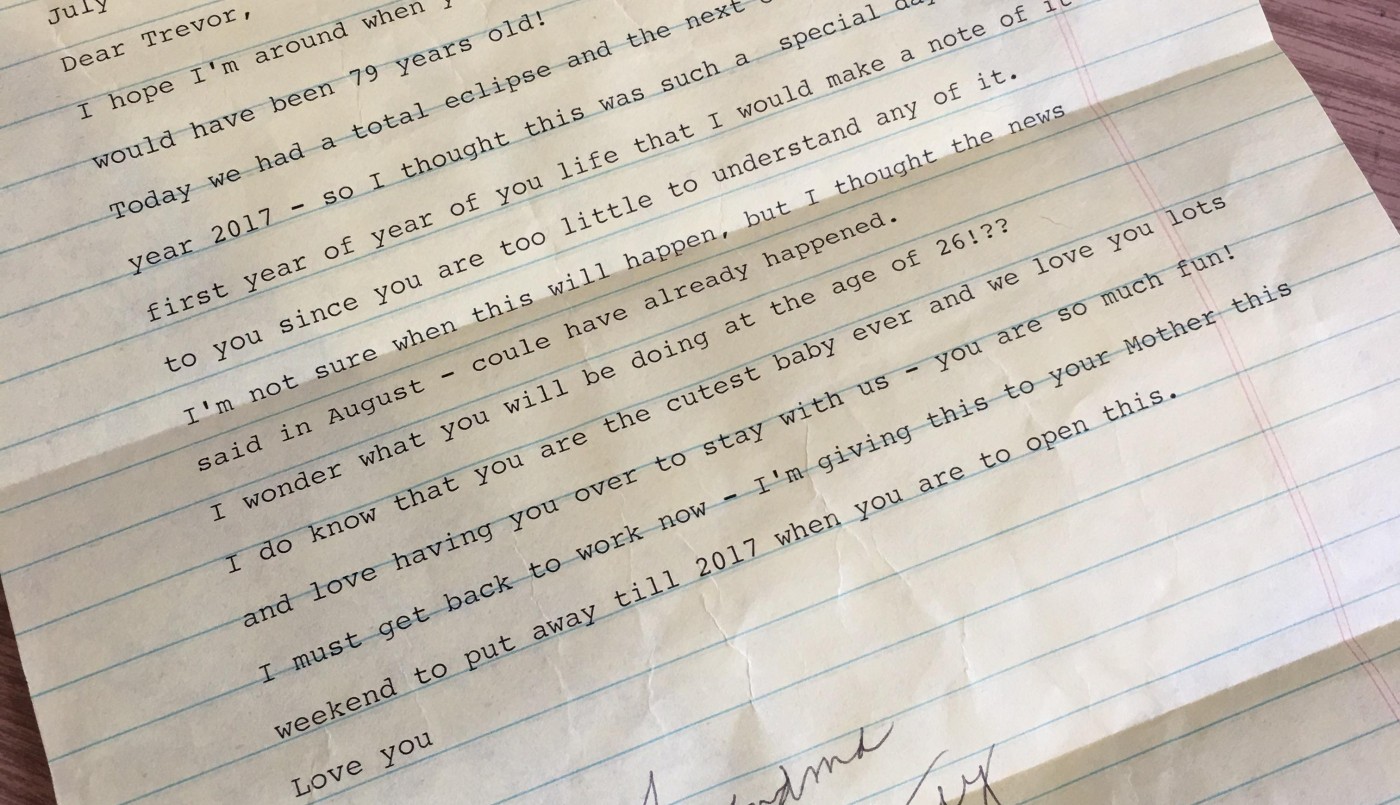 July
Dear Trevor,
I hope I'm around when
would have been 79 years old!
Today we had a total eclipse and the next
year 2017 - so I thought this was such a special
first year of year of you life that I would make a note of it
to you since you are too little to understand any of it.
I'm not sure when this will happen, but I thought the news
said in August - coule have already happened.
I wonder what you will be doing at the age of 26!??
I do know that you are the cutest baby ever and we love you lots
and love having you over to stay with us - you are so much fun!
I must get back to work now - I'm giving this to your Mother this
weekend to put away till 2017 when you are to open this.
Love you